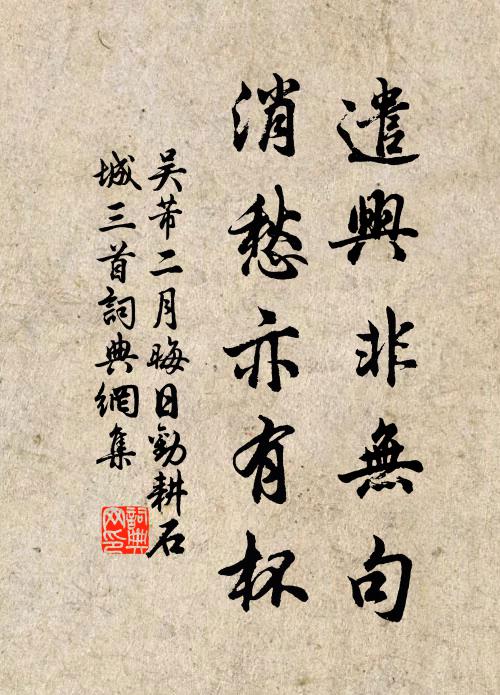 遣興非無句
消愁亦有杯
吴芾二月晦日勸耕石
城三首詞典網集
詞典網印